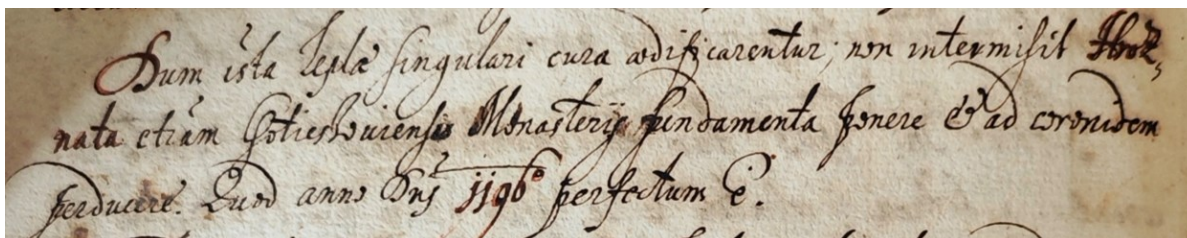 Dum ista Teplæ singulari cura ædificarentur; non intermisit Hroz,
nata etiam Chotieschoviensis Monasterij fundamenta ponere & ad coronidem
perducere. Quod anno Dnj 1196º perfectum ē.